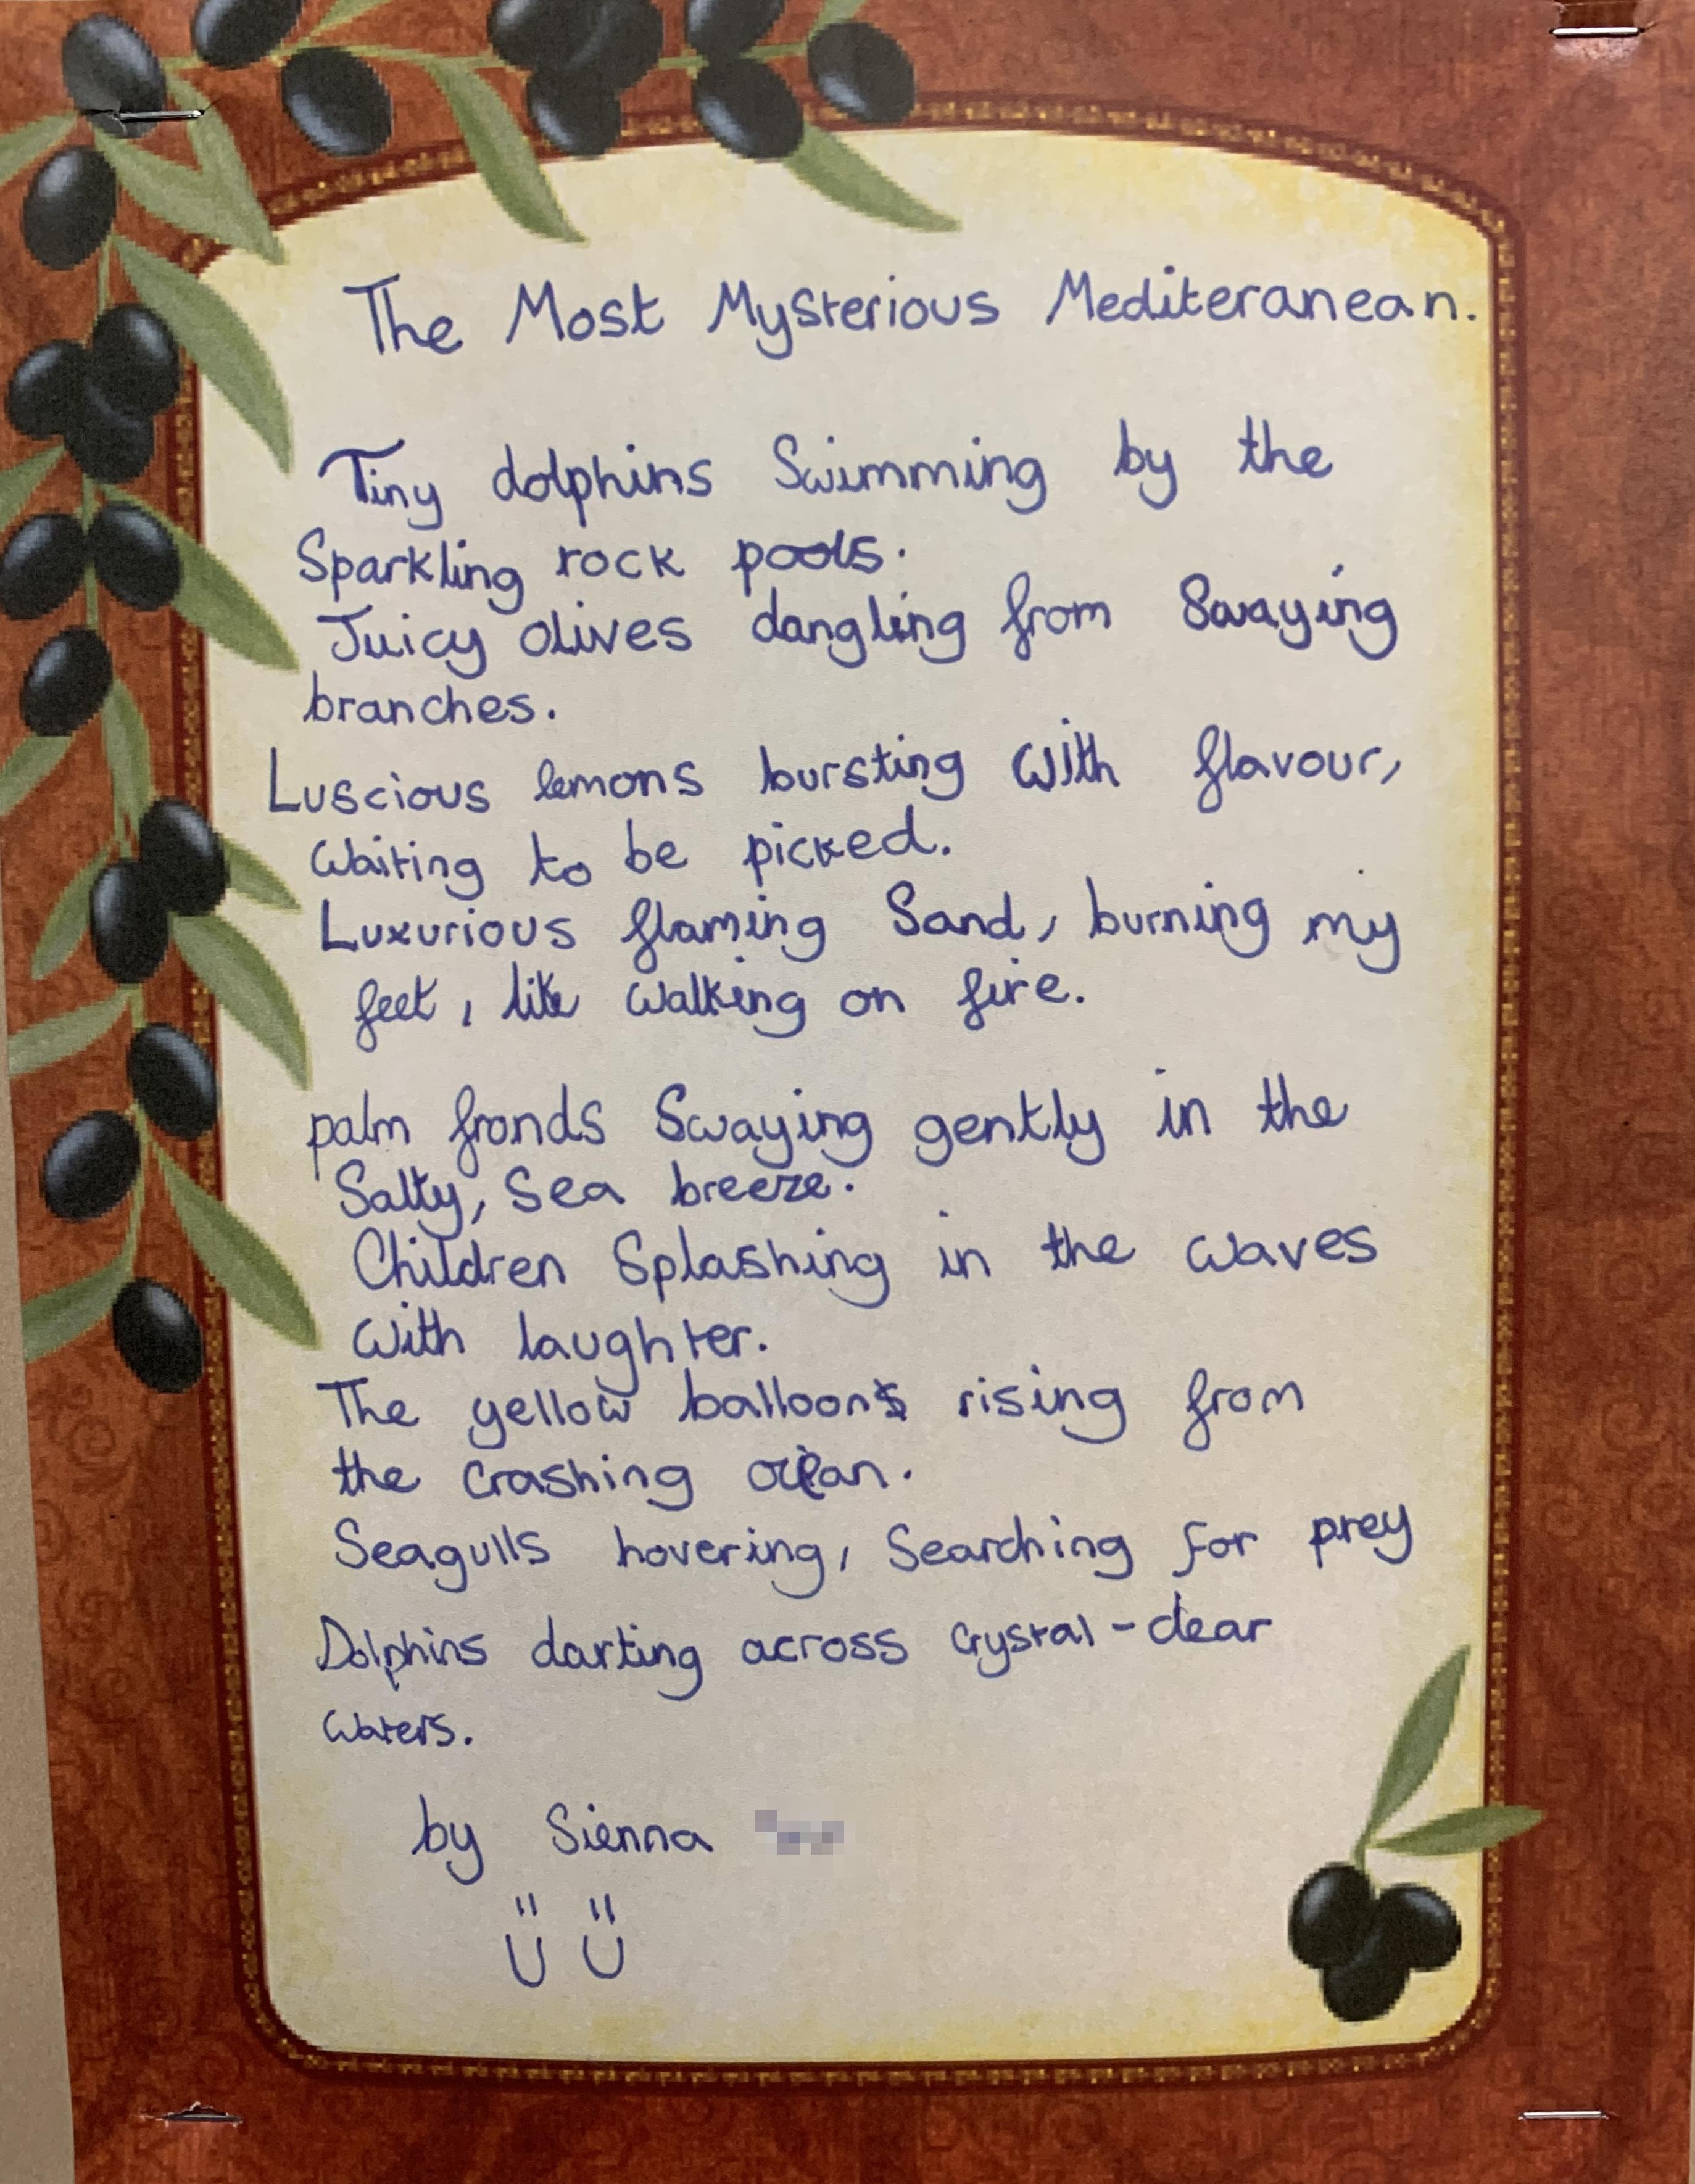 The Most Mysterious Mediteranean.
Tiny dolphins Swimming by the
Sparkling rock pools.
Juicy olives dangling from Swaying
branches.
Luscious lemons bursting with flavour,
Waiting to be picked.
Luxurious flaming Sand, burning my
feet, like walking on fire.
palm fronds Swaying gently in the
Salty, Sea breeze.
Children Splashing in the waves
with laughter.
The yellow balloons rising from
the crashing ocean.
Seagulls hovering, Searching for prey
Dolphins darting across crystal-clear
waters.
by Sienna